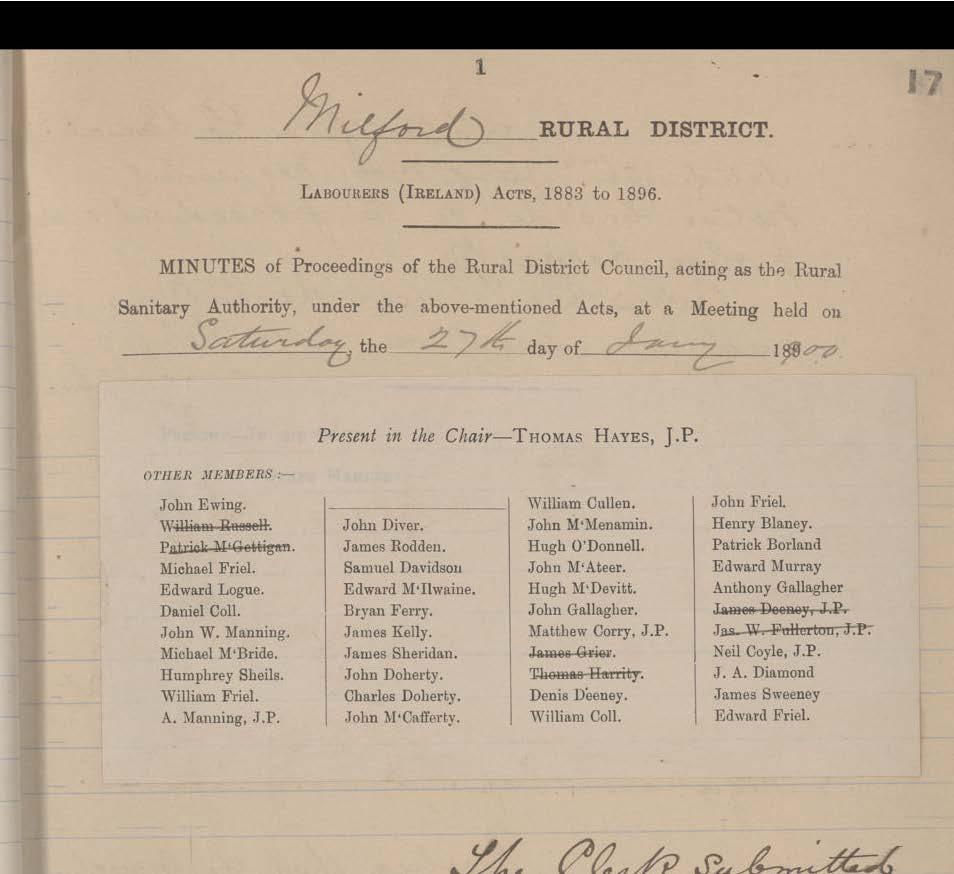 1
17
Milford RURAL DISTRICT.
LABOURERS (IRELAND) ACTS, 1883 to 1896.
MINUTES of Proceedings of the Rural District Council, acting as the Rural
Sanitary Authority, under the above-mentioned Acts, at a Meeting held on
Saturday, the 27th day of Jany 18900
Present in the Chair—THOMAS HAYES, J.P.
OTHER MEMBERS:—
John Ewing.
William Russell.
Patrick M'Gettigan.
Michael Friel.
Edward Logue.
Daniel Coll.
John W. Manning.
Michael M'Bride.
Humphrey Sheils.
William Friel.
A. Manning, J.P.
John Diver.
James Rodden.
Samuel Davidson
Edward M'Ilwaine.
Bryan Ferry.
James Kelly.
James Sheridan.
John Doherty.
Charles Doherty.
John M'Cafferty.
William Cullen.
John M'Menamin.
Hugh O'Donnell.
John M'Ateer.
Hugh M'Devitt.
John Gallagher.
Matthew Corry, J.P.
James Grier.
Thomas Harrity.
Denis Deeney.
William Coll.
John Friel.
Henry Blaney.
Patrick Borland
Edward Murray
Anthony Gallagher
James Deeney, J.P.
Jas. W. Fullerton, J.P.
Neil Coyle, J.P.
J. A. Diamond
James Sweeney
Edward Friel.
The Clerk submitted